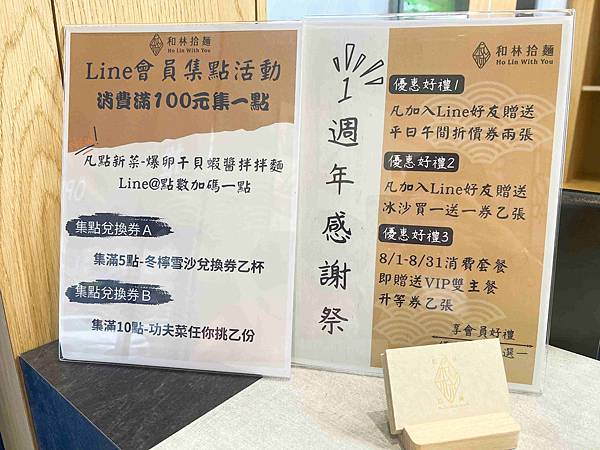 和林拾麵
Ho Lin With You
Line會員集點活動
消費滿100元集一點
凡點新菜-爆卵干貝蝦醬拌拌麵
Line@點數加碼一點
集點兌換券A
集滿5點-冬檸雪沙兌換券乙杯
集點兌換券B
集滿10點-功夫菜任你挑乙份
和林拾麵
Ho Lin With You
1週年感謝祭
優惠好禮1
凡加入Line好友贈送
平日午間折價券兩張
優惠好禮2
凡加入Line好友贈送
冰沙買一送一券乙張
優惠好禮3
8/1-8/31消費套餐
即贈送VIP雙主餐
升等券乙張
享會員好禮
選一